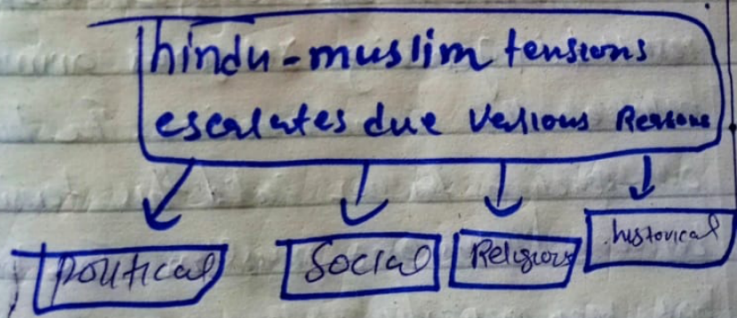 hindu-muslim tensions
escalates due various Reasons
political Social Religious historical